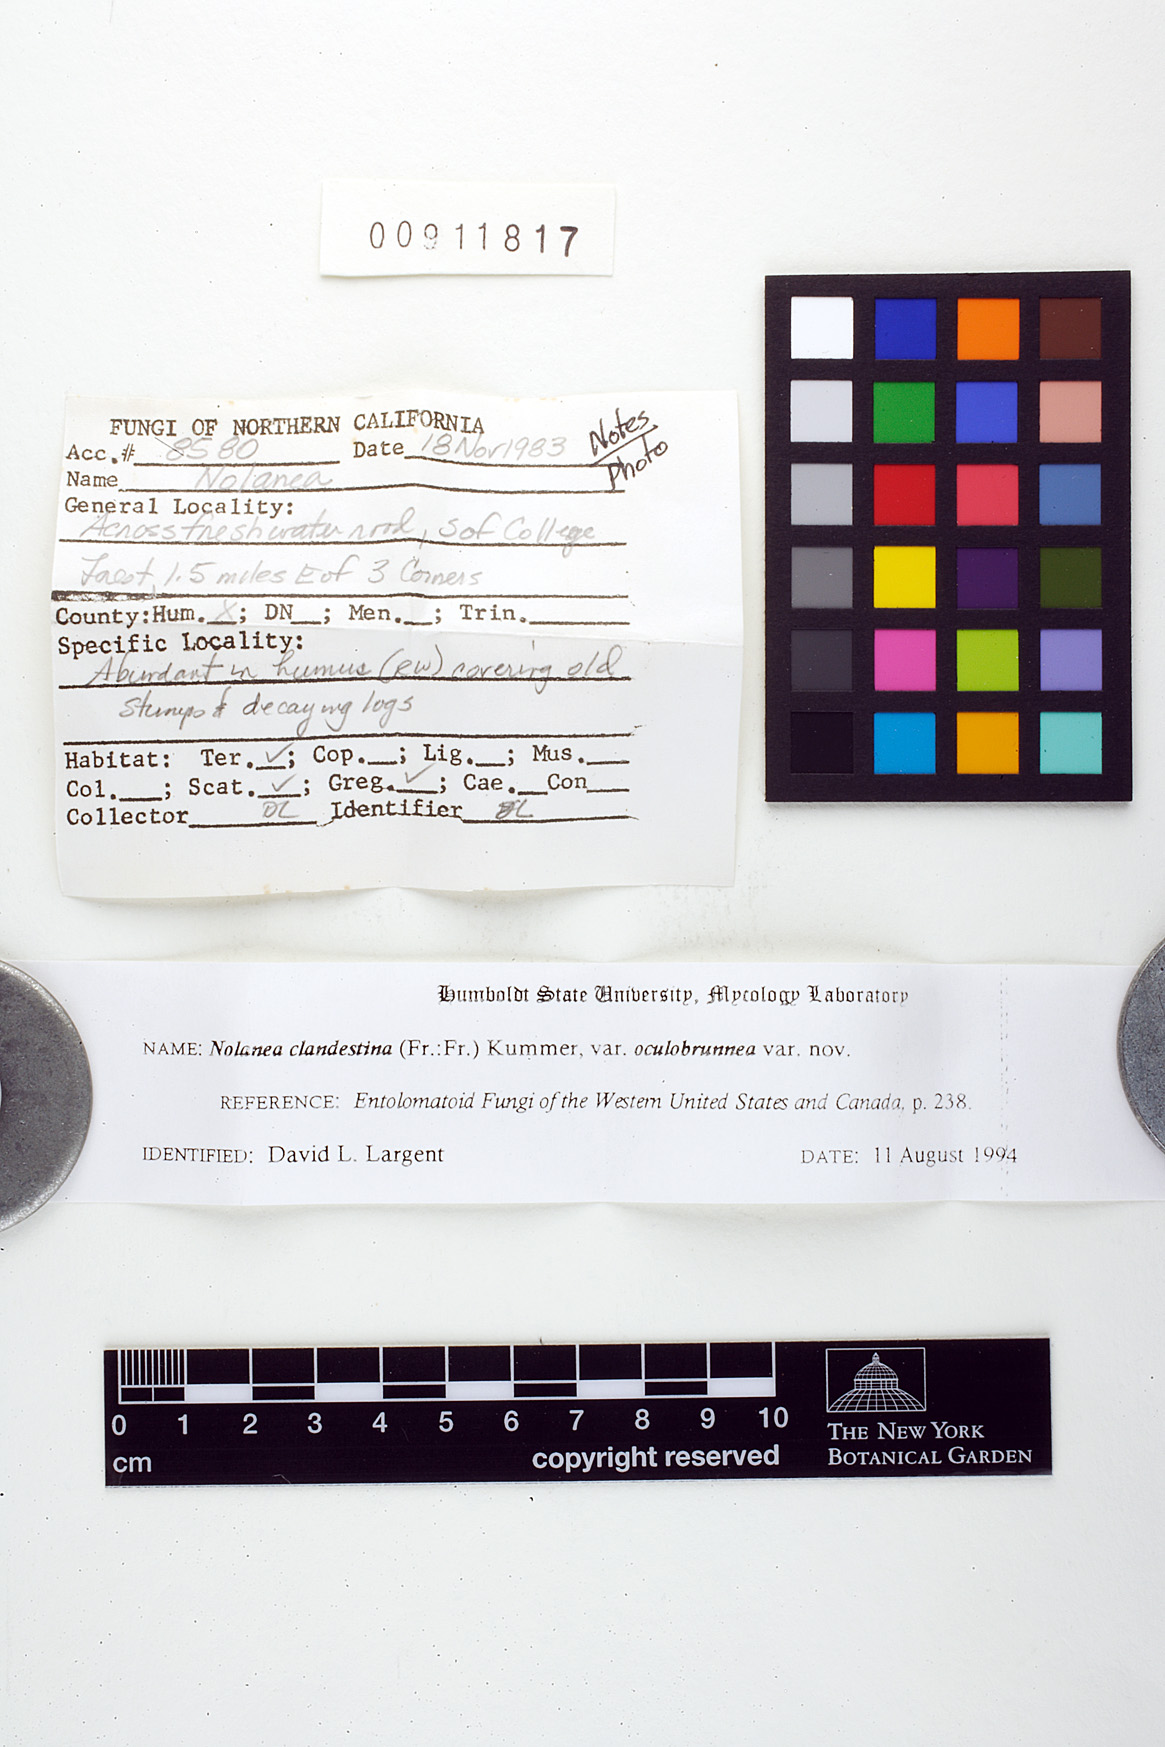 00911817
FUNGI OF NORTHERN CALIFORNIA
Acc.# 8580 Date 18Nov1983 Notes
Photo
Name Nolanea
General Locality:
Across freshwater road, S of College
Forest, 1.5 miles E of 3 Corners
County:Hum. X; DN__; Men.__; Trin.______
Specific Locality:
Abundant in humus (RW) covering old
stumps & decaying logs
Habitat: Ter. ✓; Cop.__; Lig.__; Mus.___
Col.___; Scat. ✓; Greg. ✓; Cae.__Con___
Collector DL Identifier DL
Humboldt State University, Mycology Laboratory
NAME: Nolanea clandestina (Fr.:Fr.) Kummer, var. oculobrunnea var. nov.
REFERENCE: Entolomatoid Fungi of the Western United States and Canada, p. 238.
IDENTIFIED: David L. Largent DATE: 11 August 1994
0 1 2 3 4 5 6 7 8 9 10
cm copyright reserved
THE NEW YORK
BOTANICAL GARDEN